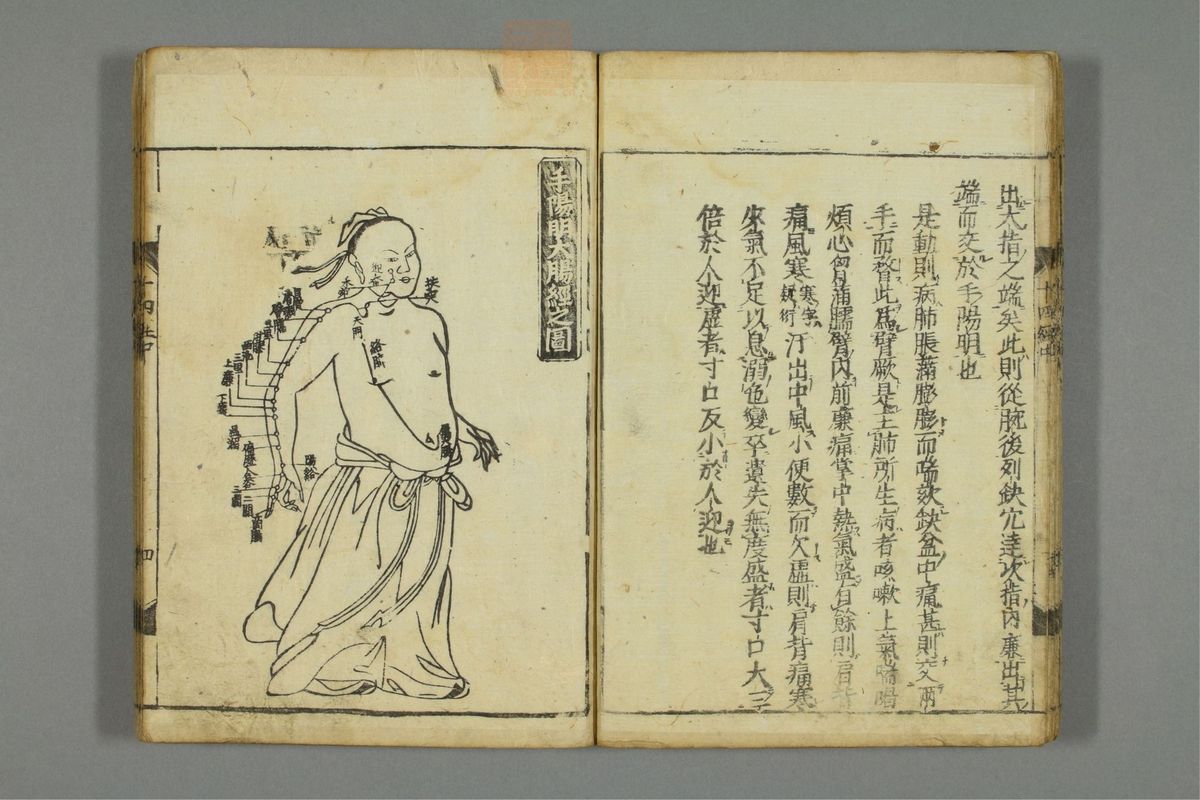 出大指之端矣此則從腕後列缺穴達次指內廉出其
端而交於手陽明也
是動則病肺脹滿膨膨而喘欬缺盆中痛甚則交兩
手而瞀此為臂厥是主肺所生病者咳嗽上氣喘喝
煩心胷滿臑臂內前廉痛掌中熱氣盛有餘則肩背
痛風寒 寒字疑衍 汗出中風小便數而欠虛則肩背痛寒
少氣不足以息溺色變卒遺失無度盛者寸口大三
倍於人迎虛者寸口反小於人迎也
十四經
手陽明大腸經之圖
扶突
迎香
禾窌
天鼎
三里
上廉
下廉
溫溜
偏歷
合谷
三間
二間
商陽
陽谿
四